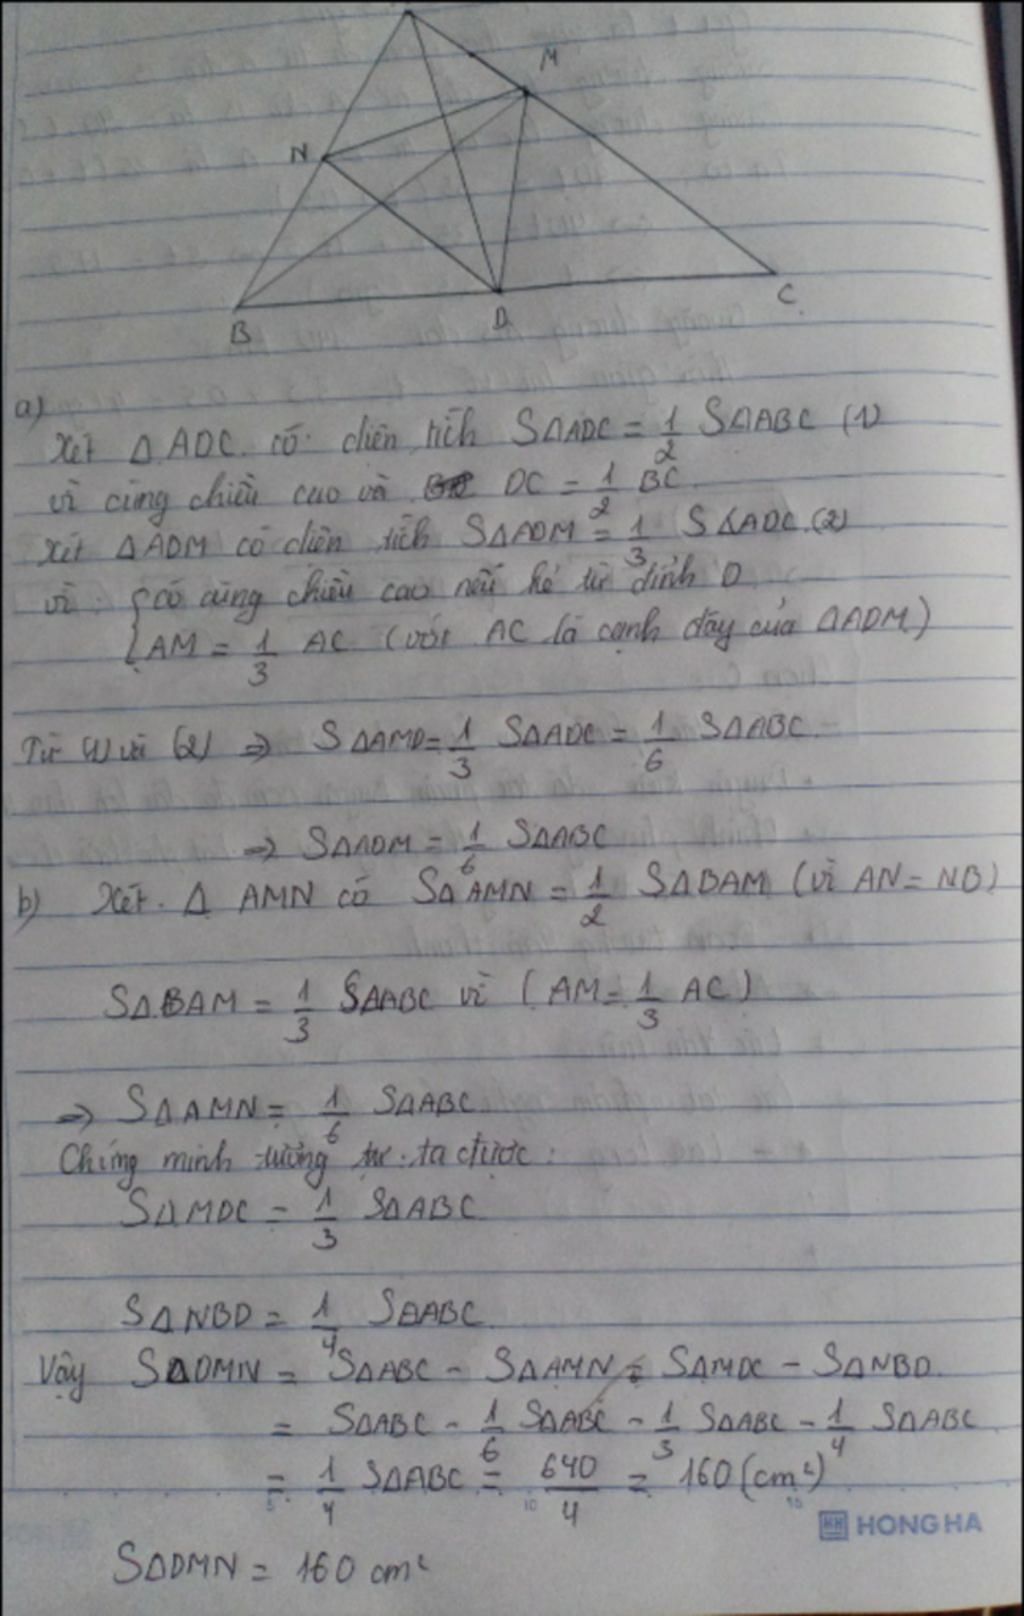 M
N
B
D
C
a)
Xét Δ ADC có diện tích SΔADC = 1/2 SΔABC (1)
vì cùng chiều cao và DC = 1/2 BC
Xét ΔADM có diện tích SΔADM = 1/3 SΔADC (2)
vì: { có cùng chiều cao nếu kẻ từ đỉnh D
AM = 1/3 AC (với AC là cạnh đáy của ΔADM)
Từ (1) và (2) ⇒ SΔAMD = 1/3 SΔADC = 1/6 SΔABC
⇒ SΔADM = 1/6 SΔABC
b) Xét Δ AMN có SΔAMN = 1/2 SΔBAM (vì AN = NB)
SΔBAM = 1/3 SΔABC vì (AM = 1/3 AC)
⇒ SΔAMN = 1/6 SΔABC
Chứng minh tương tự ta được:
SΔMDC = 1/3 SΔABC
SΔNBD = 1/4 SΔABC
Vậy SΔDMN = SΔABC - SΔAMN - SΔMDC - SΔNBD
= SΔABC - 1/6 SΔABC - 1/3 SΔABC - 1/4 SΔABC
= 1/4 SΔABC = 640/4 = 160 (cm²)
5 10 15
HH HONG HA
SΔDMN = 160 cm²